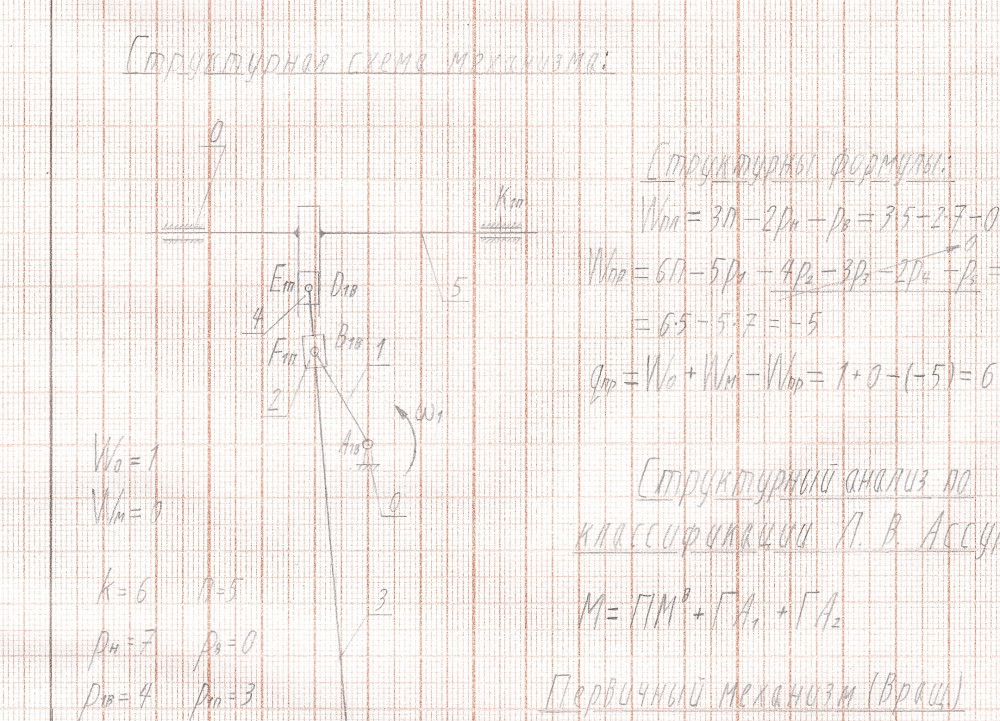 Структурная схема механизма:
0
K₁п
E₁п D₁в
5
4
F₁п B₁в 1
2
ω₁
A₁в
0
3
W₀ = 1
Wм = 0
k = 6 n = 5
pн = 7 pв = 0
p₁в = 4 p₁п = 3
Структурны формулы:
Wпл = 3n − 2pн − pв = 3·5 − 2·7 − 0
Wпр = 6n − 5p₁ − 4p₂ − 3p₃ − 2p₄ − p₅ =
0
= 6·5 − 5·7 = −5
qпр = W₀ + Wм − Wпр = 1 + 0 − (−5) = 6
Структурный анализ по
классификации Л. В. Ассур
M = ПМᴮ + ГА₁ + ГА₂
Первичный механизм (Вращ.)